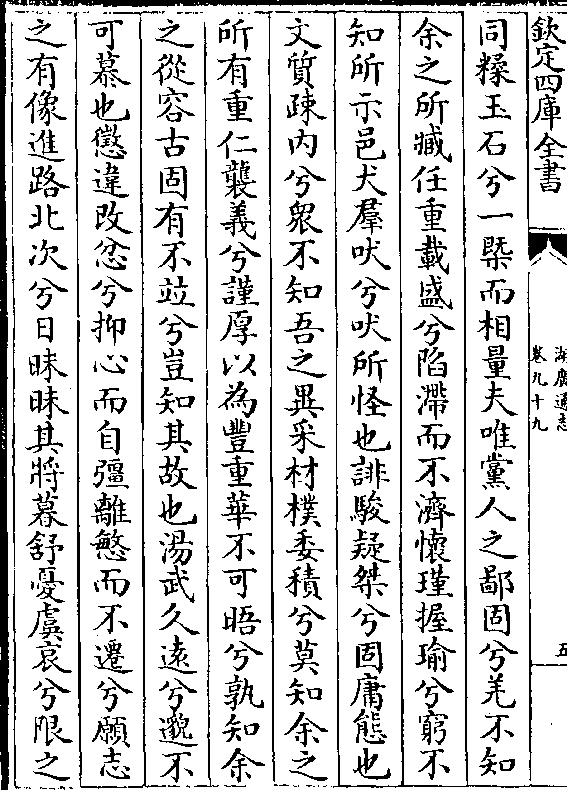 欽定四庫全書
湖廣通志
卷九十九
五
同糅玉石兮一槩而相量夫唯黨人之鄙固兮羌不知
余之所臧任重載盛兮陷滯而不濟懷瑾握瑜兮窮不
知所示邑犬羣吠兮吠所怪也誹駿疑桀兮固庸態也
文質疎内兮衆不知吾之異采材樸委積兮莫知余之
所有重仁襲義兮謹厚以為豐重華不可晤兮孰知余
之從容古固有不竝兮豈知其故也湯武久遠兮邈不
可慕也懲違改忿兮抑心而自彊離慜而不遷兮願志
之有像進路北次兮日昧昧其將暮舒憂虞哀兮限之